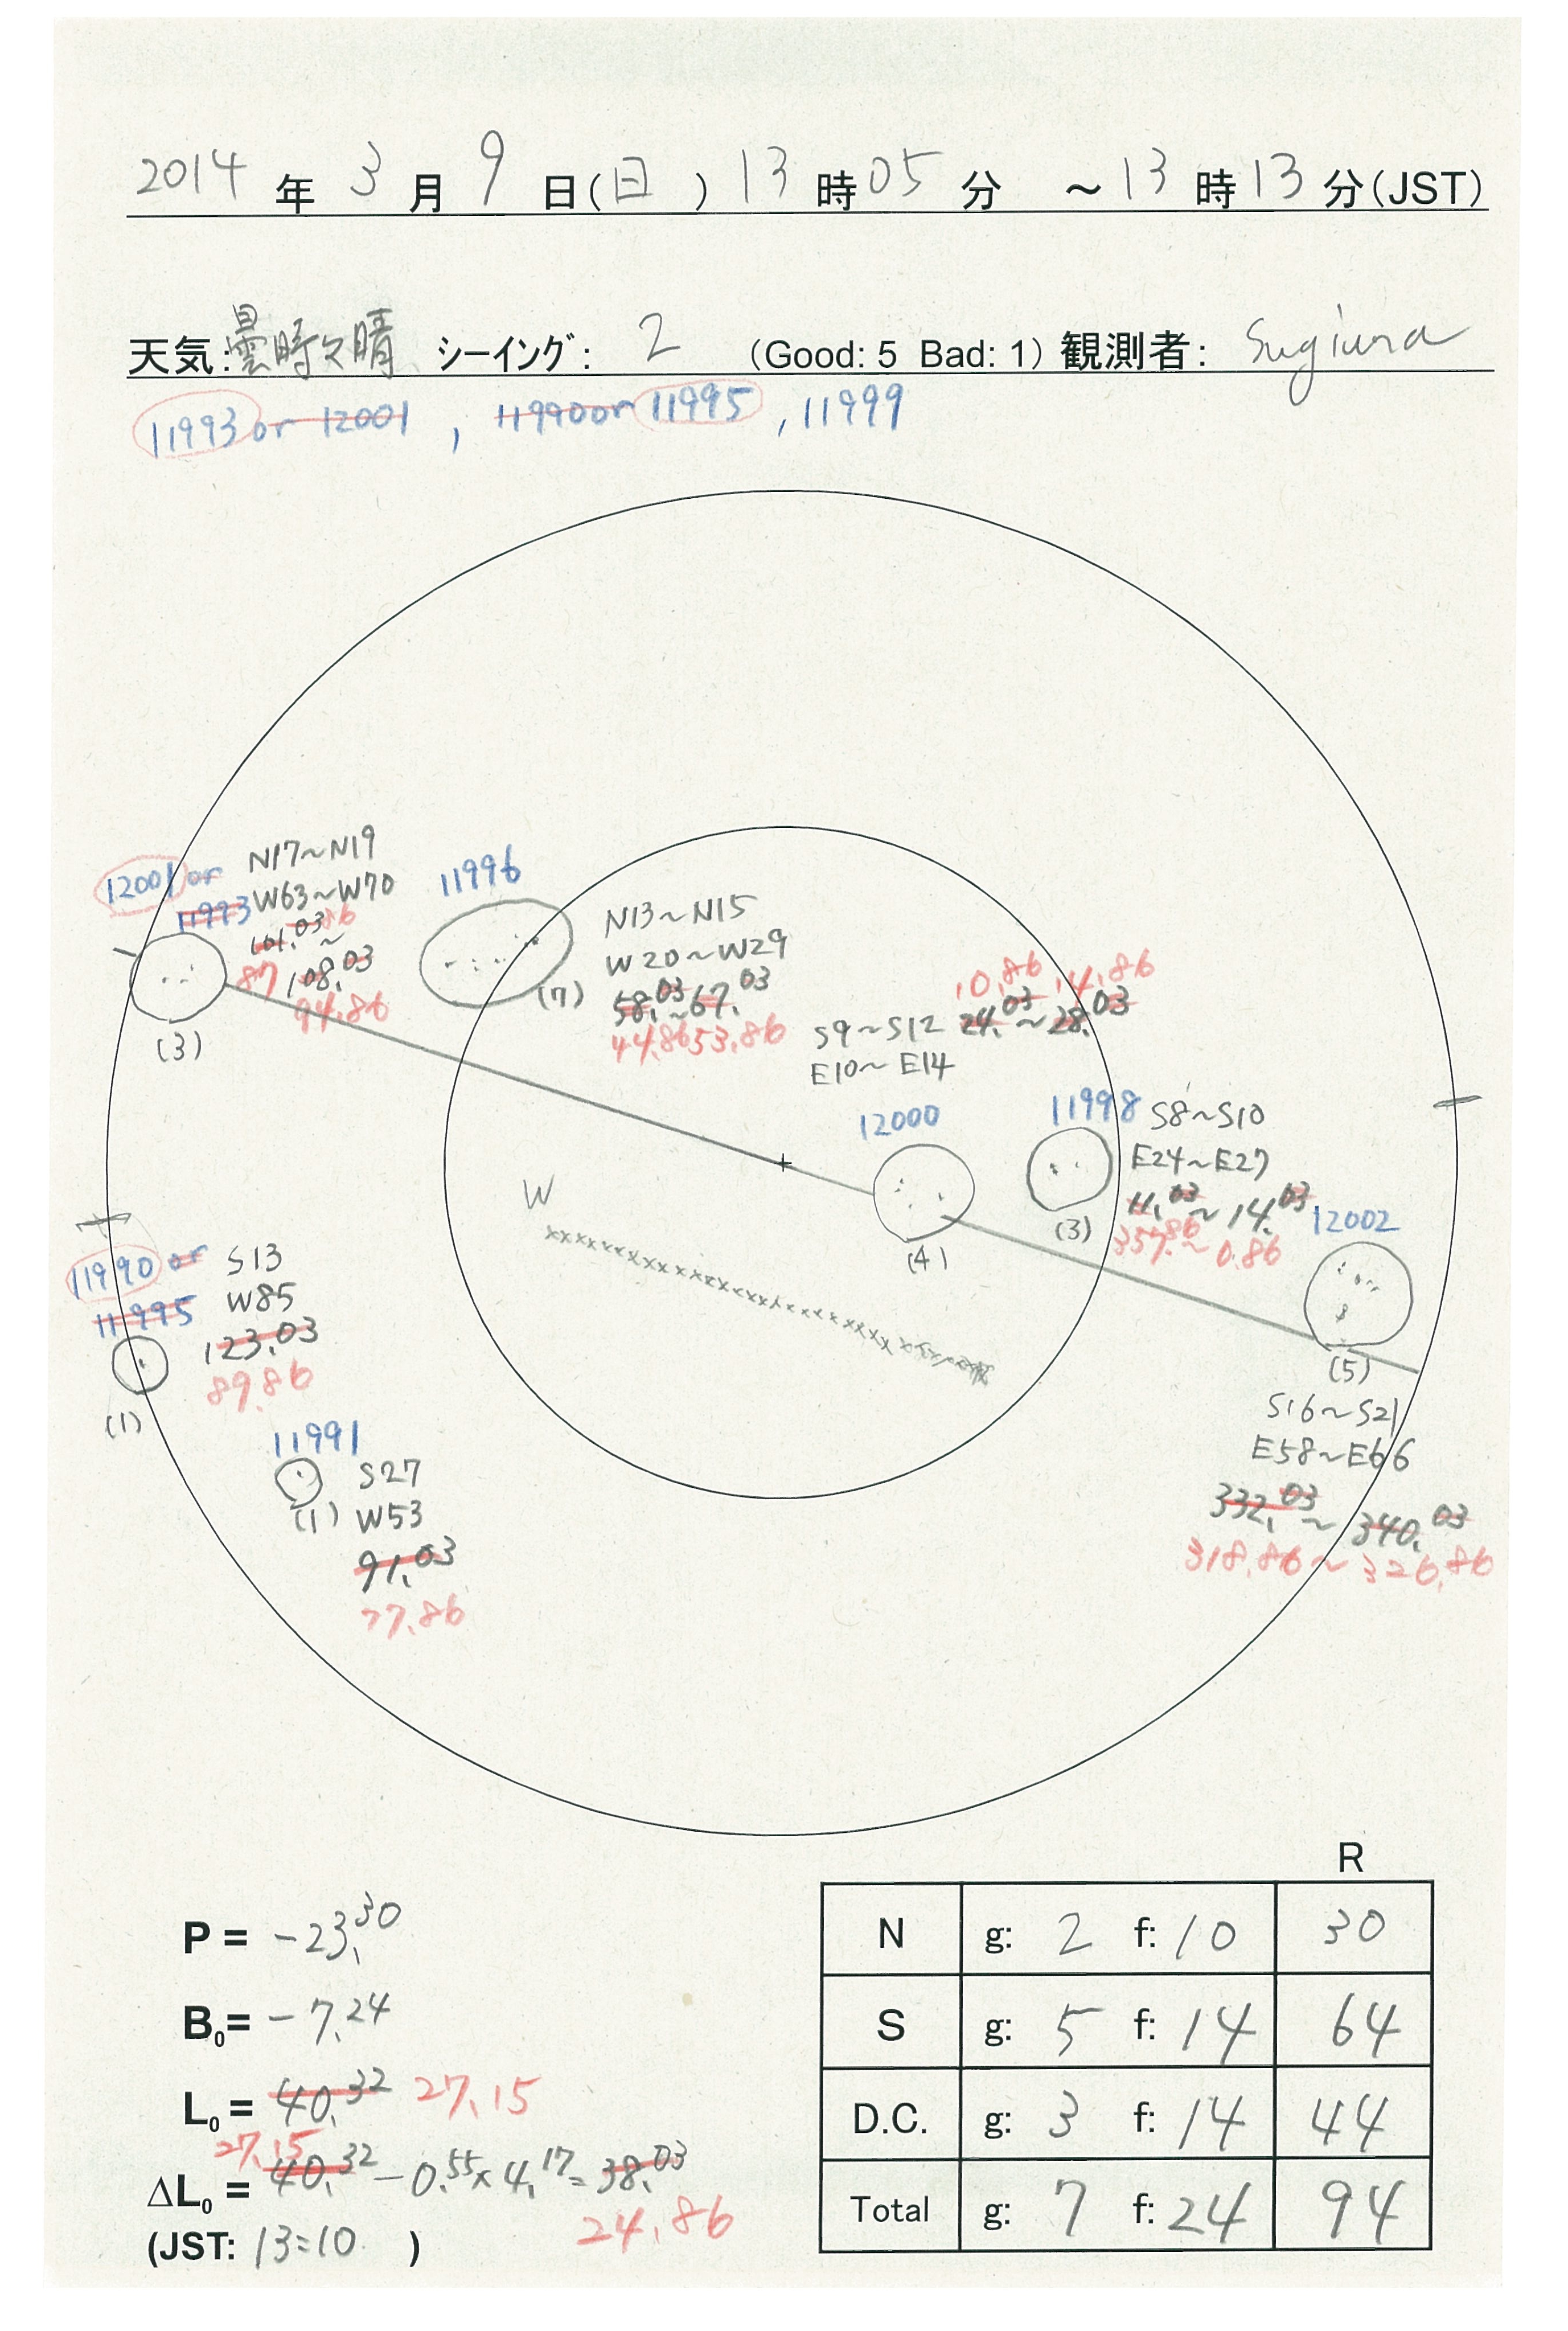 2014 年 3 月 9 日(日) 13 時 05 分 ～ 13 時 13 分(JST)
天気: 曇時々晴 シーイング: 2 (Good: 5 Bad: 1) 観測者: Sugiura
11993 or 12001 , 11990 or 11995 , 11999
12001 or
11993
N17～N19
W63～W70
101.03～
86
87
108.03
94.86
(3)
11996
(7)
N13～N15
W20～W29
58.03～67.03
44.86 53.86
S9～S12
E10～E14
10.86 , 14.86
24.03～28.03
12000
(4)
11998
(3)
S8～S10
E24～E27
11.03～14.03
357.86～0.86
12002
(5)
S16～S21
E58～E66
332.03～340.03
318.86～326.86
W
11990 or
11995
S13
W85
123.03
89.86
(1)
11991
(1)
S27
W53
91.03
77.86
P = -23.30
B0= -7.24
L0= 40.32 27.15
27.15
ΔL0= 40.32 - 0.55×4.17= 38.03
24.86
(JST: 13:10 )
R
N g: 2 f: 10 30
S g: 5 f: 14 64
D.C. g: 3 f: 14 44
Total g: 7 f: 24 94